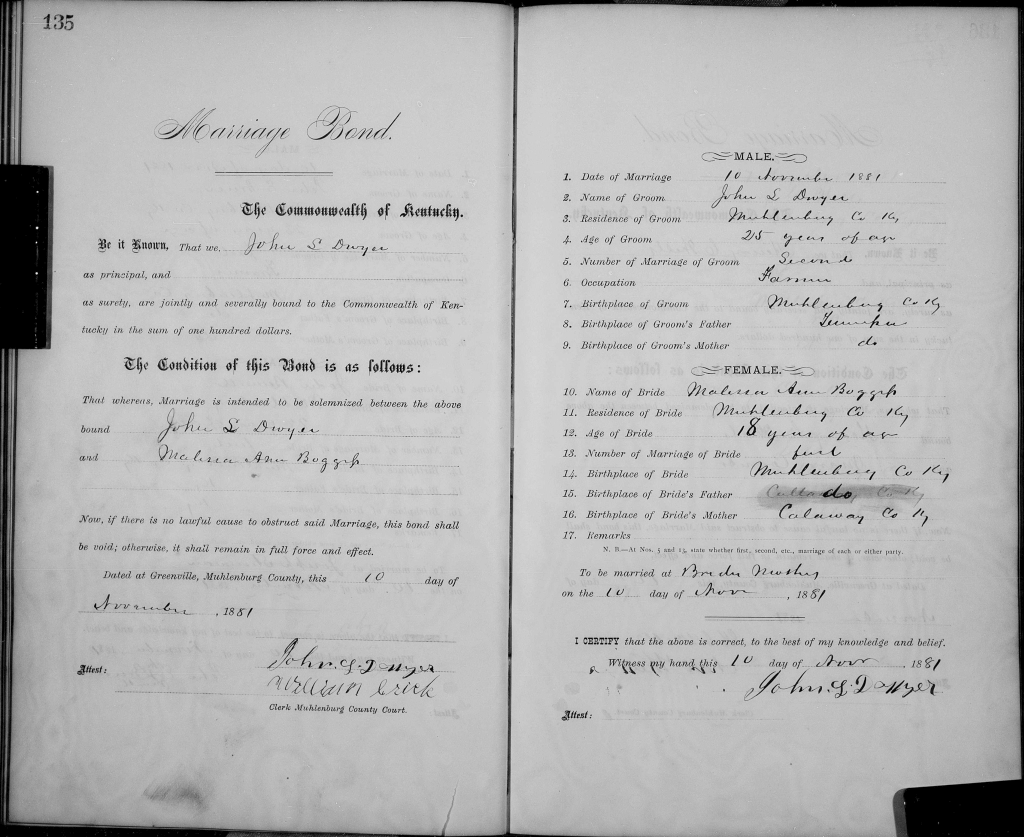 135
Marriage Bond.
The Commonwealth of Kentucky.
Be it Known, That we, John L Dwyer
as principal, and
as surety, are jointly and severally bound to the Commonwealth of Ken-
tucky in the sum of one hundred dollars.
The Condition of this Bond is as follows:
That whereas, Marriage is intended to be solemnized between the above
bound John L Dwyer
and Malissa Ann Boggess
Now, if there is no lawful cause to obstruct said Marriage, this bond shall
be void; otherwise, it shall remain in full force and effect.
Dated at Greenville, Muhlenburg County, this 10 day of
November, 1881
John L. Dwyer
Attest: William Crick
Clerk Muhlenburg County Court.
MALE.
1. Date of Marriage 10 November 1881
2. Name of Groom John L Dwyer
3. Residence of Groom Muhlenburg Co Ky
4. Age of Groom 25 years of age
5. Number of Marriage of Groom Second
6. Occupation Farmer
7. Birthplace of Groom Muhlenburg Co Ky
8. Birthplace of Groom's Father
9. Birthplace of Groom's Mother do
FEMALE.
10. Name of Bride Malissa Ann Boggess
11. Residence of Bride Muhlenburg Co Ky
12. Age of Bride 18 years of age
13. Number of Marriage of Bride first
14. Birthplace of Bride Muhlenburg Co Ky
15. Birthplace of Bride's Father do
16. Birthplace of Bride's Mother Calaway Co Ky
17. Remarks
N. B.—At Nos. 5 and 13, state whether first, second, etc., marriage of each or either party.
To be married at Brides Mothers
on the 10 day of Novr, 1881
I CERTIFY that the above is correct, to the best of my knowledge and belief.
Witness my hand this 10 day of Novr, 1881
John L. Dwyer
Attest: